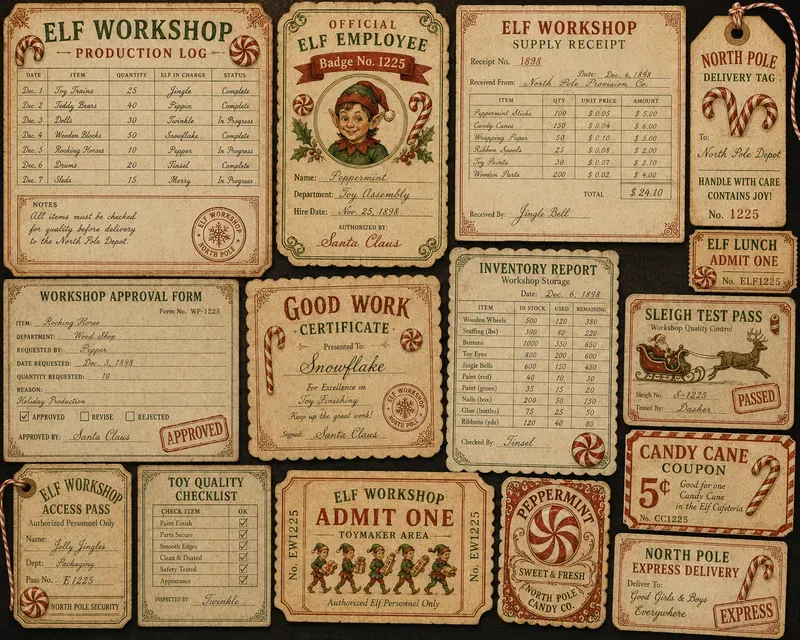 ELF WORKSHOP
PRODUCTION LOG
DATE ITEM QUANTITY ELF IN CHARGE STATUS
Dec. 1 Toy Trains 25 Jingle Complete
Dec. 2 Teddy Bears 40 Pippin Complete
Dec. 3 Dolls 30 Twinkle In Progress
Dec. 4 Wooden Blocks 50 Snowflake Complete
Dec. 5 Rocking Horses 10 Pepper In Progress
Dec. 6 Drums 20 Tinsel Complete
Dec. 7 Sleds 15 Merry In Progress
NOTES
All items must be checked
for quality before delivery
to the North Pole Depot.
ELF WORKSHOP
NORTH POLE
OFFICIAL
ELF EMPLOYEE
Badge No. 1225
Name: Peppermint
Department: Toy Assembly
Hire Date: Nov. 25, 1898
AUTHORIZED BY:
Santa Claus
ELF WORKSHOP
SUPPLY RECEIPT
Receipt No. 1898
Date: Dec. 6, 1898
Received From: North Pole Provision Co.
ITEM QTY UNIT PRICE AMOUNT
Peppermint Sticks 100 $ 0.05 $ 5.00
Candy Canes 150 $ 0.04 $ 6.00
Wrapping Paper 50 $ 0.10 $ 5.00
Ribbon Spools 25 $ 0.08 $ 2.00
Toy Paints 30 $ 0.07 $ 2.10
Wooden Parts 200 $ 0.02 $ 4.00
TOTAL $ 24.10
Received By: Jingle Bell
NORTH POLE
DELIVERY TAG
To:
North Pole Depot
HANDLE WITH CARE
CONTAINS JOY!
No. 1225
ELF LUNCH
ADMIT ONE
No. ELF1225
WORKSHOP APPROVAL FORM
Form No. WP-1225
ITEM: Rocking Horse
DEPARTMENT: Wood Shop
REQUESTED BY: Pepper
DATE REQUESTED: Dec. 3, 1898
QUANTITY REQUESTED: 10
REASON:
Holiday Production
APPROVED REVISE REJECTED
APPROVED BY: Santa Claus
APPROVED
GOOD WORK
CERTIFICATE
Presented To:
Snowflake
For Excellence in
Toy Finishing
Keep up the great work!
Signed: Santa Claus
ELF WORKSHOP
NORTH POLE
INVENTORY REPORT
Workshop Storage
Date: Dec. 6, 1898
ITEM IN STOCK USED REMAINING
Wooden Wheels 500 120 380
Stuffing (lbs) 300 80 220
Buttons 1000 350 650
Toy Eyes 800 200 600
Jingle Bells 600 150 450
Paint (red) 40 10 30
Paint (green) 35 15 20
Nails (box) 200 50 150
Glue (bottles) 75 25 50
Ribbons (yds) 120 40 80
Checked By: Tinsel
SLEIGH TEST PASS
Workshop Quality Control
Sleigh No. S-1225
Tested By: Dasher
PASSED
CANDY CANE
COUPON
5¢ Good for one
Candy Cane
in the Elf Cafeteria
No. CC1225
ELF WORKSHOP
ACCESS PASS
Authorized Personnel Only
Name: Jolly Jingles
Dept: Packaging
Pass No. E1225
NORTH POLE SECURITY
TOY QUALITY
CHECKLIST
CHECK ITEM OK
Paint Finish
Parts Secure
Smooth Edges
Clean & Dusted
Safety Tested
Appearance
INSPECTED BY Twinkle
ELF WORKSHOP
ADMIT ONE
TOYMAKER AREA
No. EW1225
No. EW1225
Authorized Elf Personnel Only
PEPPERMINT
SWEET & FRESH
NORTH POLE
CANDY CO.
NORTH POLE
EXPRESS DELIVERY
Deliver To:
Good Girls & Boys
Everywhere
EXPRESS